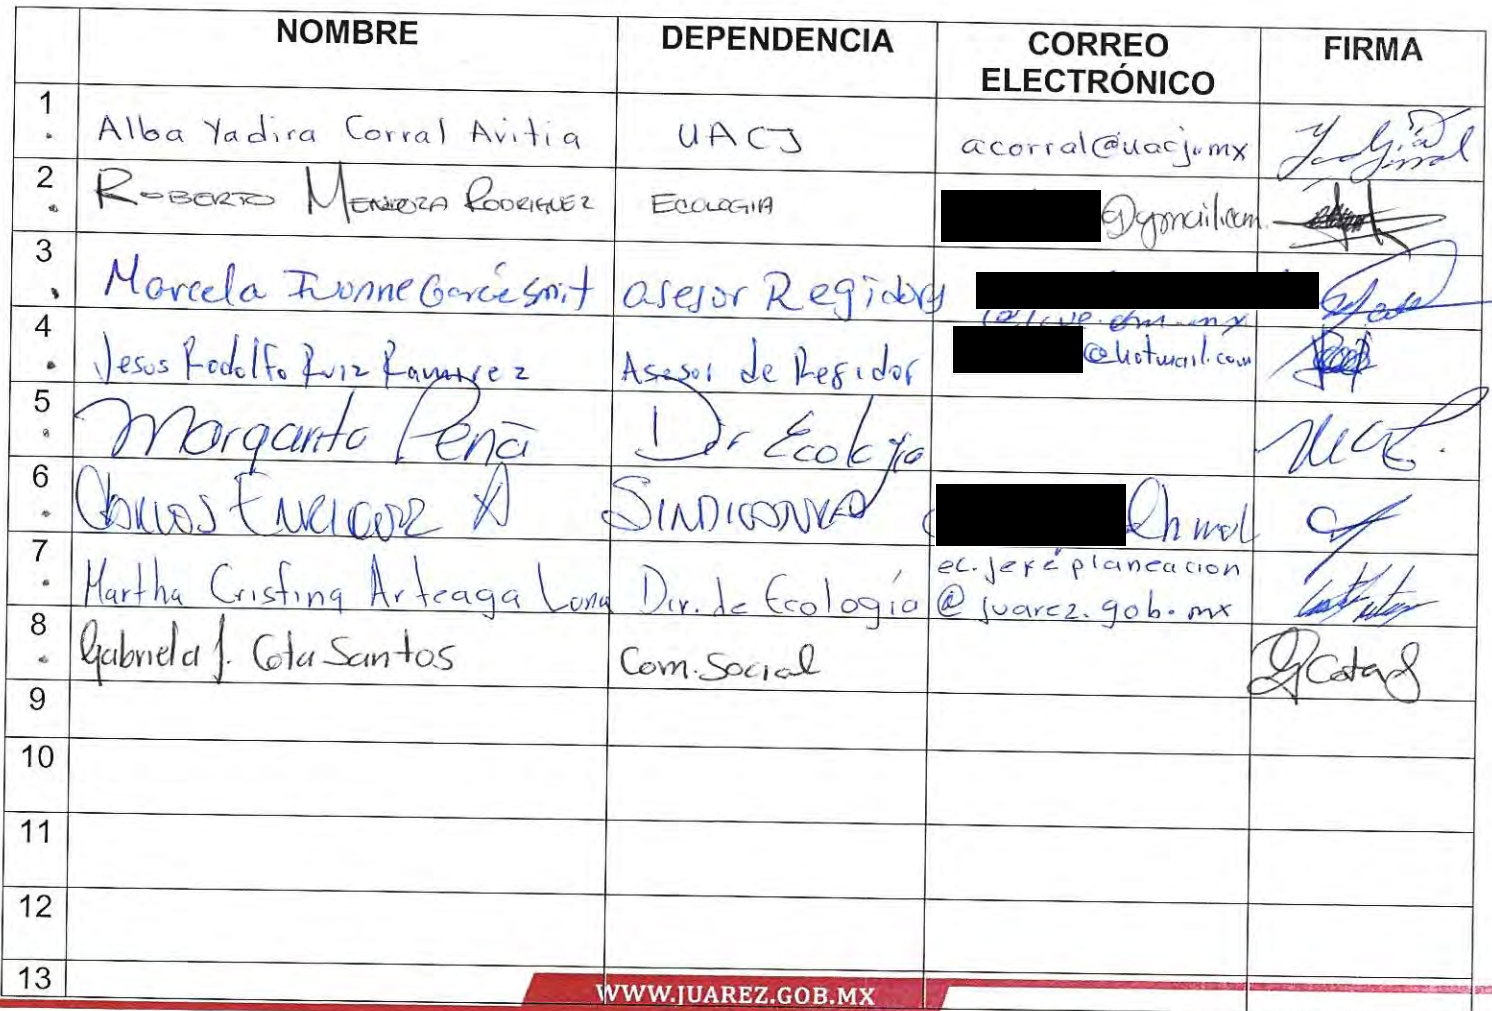 NOMBRE DEPENDENCIA CORREO ELECTRÓNICO FIRMA
1. Alba Yadira Corral Avitia UACJ acorral@uacj.mx
2. ROBERTO MENDOZA RODRIGUEZ ECOLOGIA @gmail.com
3. Marcela Ivonne asesor Regidora
4. Jesus Rodolfo Ruiz Ramirez Asesor de Regidor @hotmail.com
5. Margarito Peña Dir Ecología
6. CARLOS ENRIQUEZ
7. Martha Cristina Arteaga Luna Dir. de Ecología ec.jefeplaneacion
@juarez.gob.mx
8. Gabriela J. Cota Santos Com. Social GCotaS
9
10
11
12
13
WWW.JUAREZ.GOB.MX